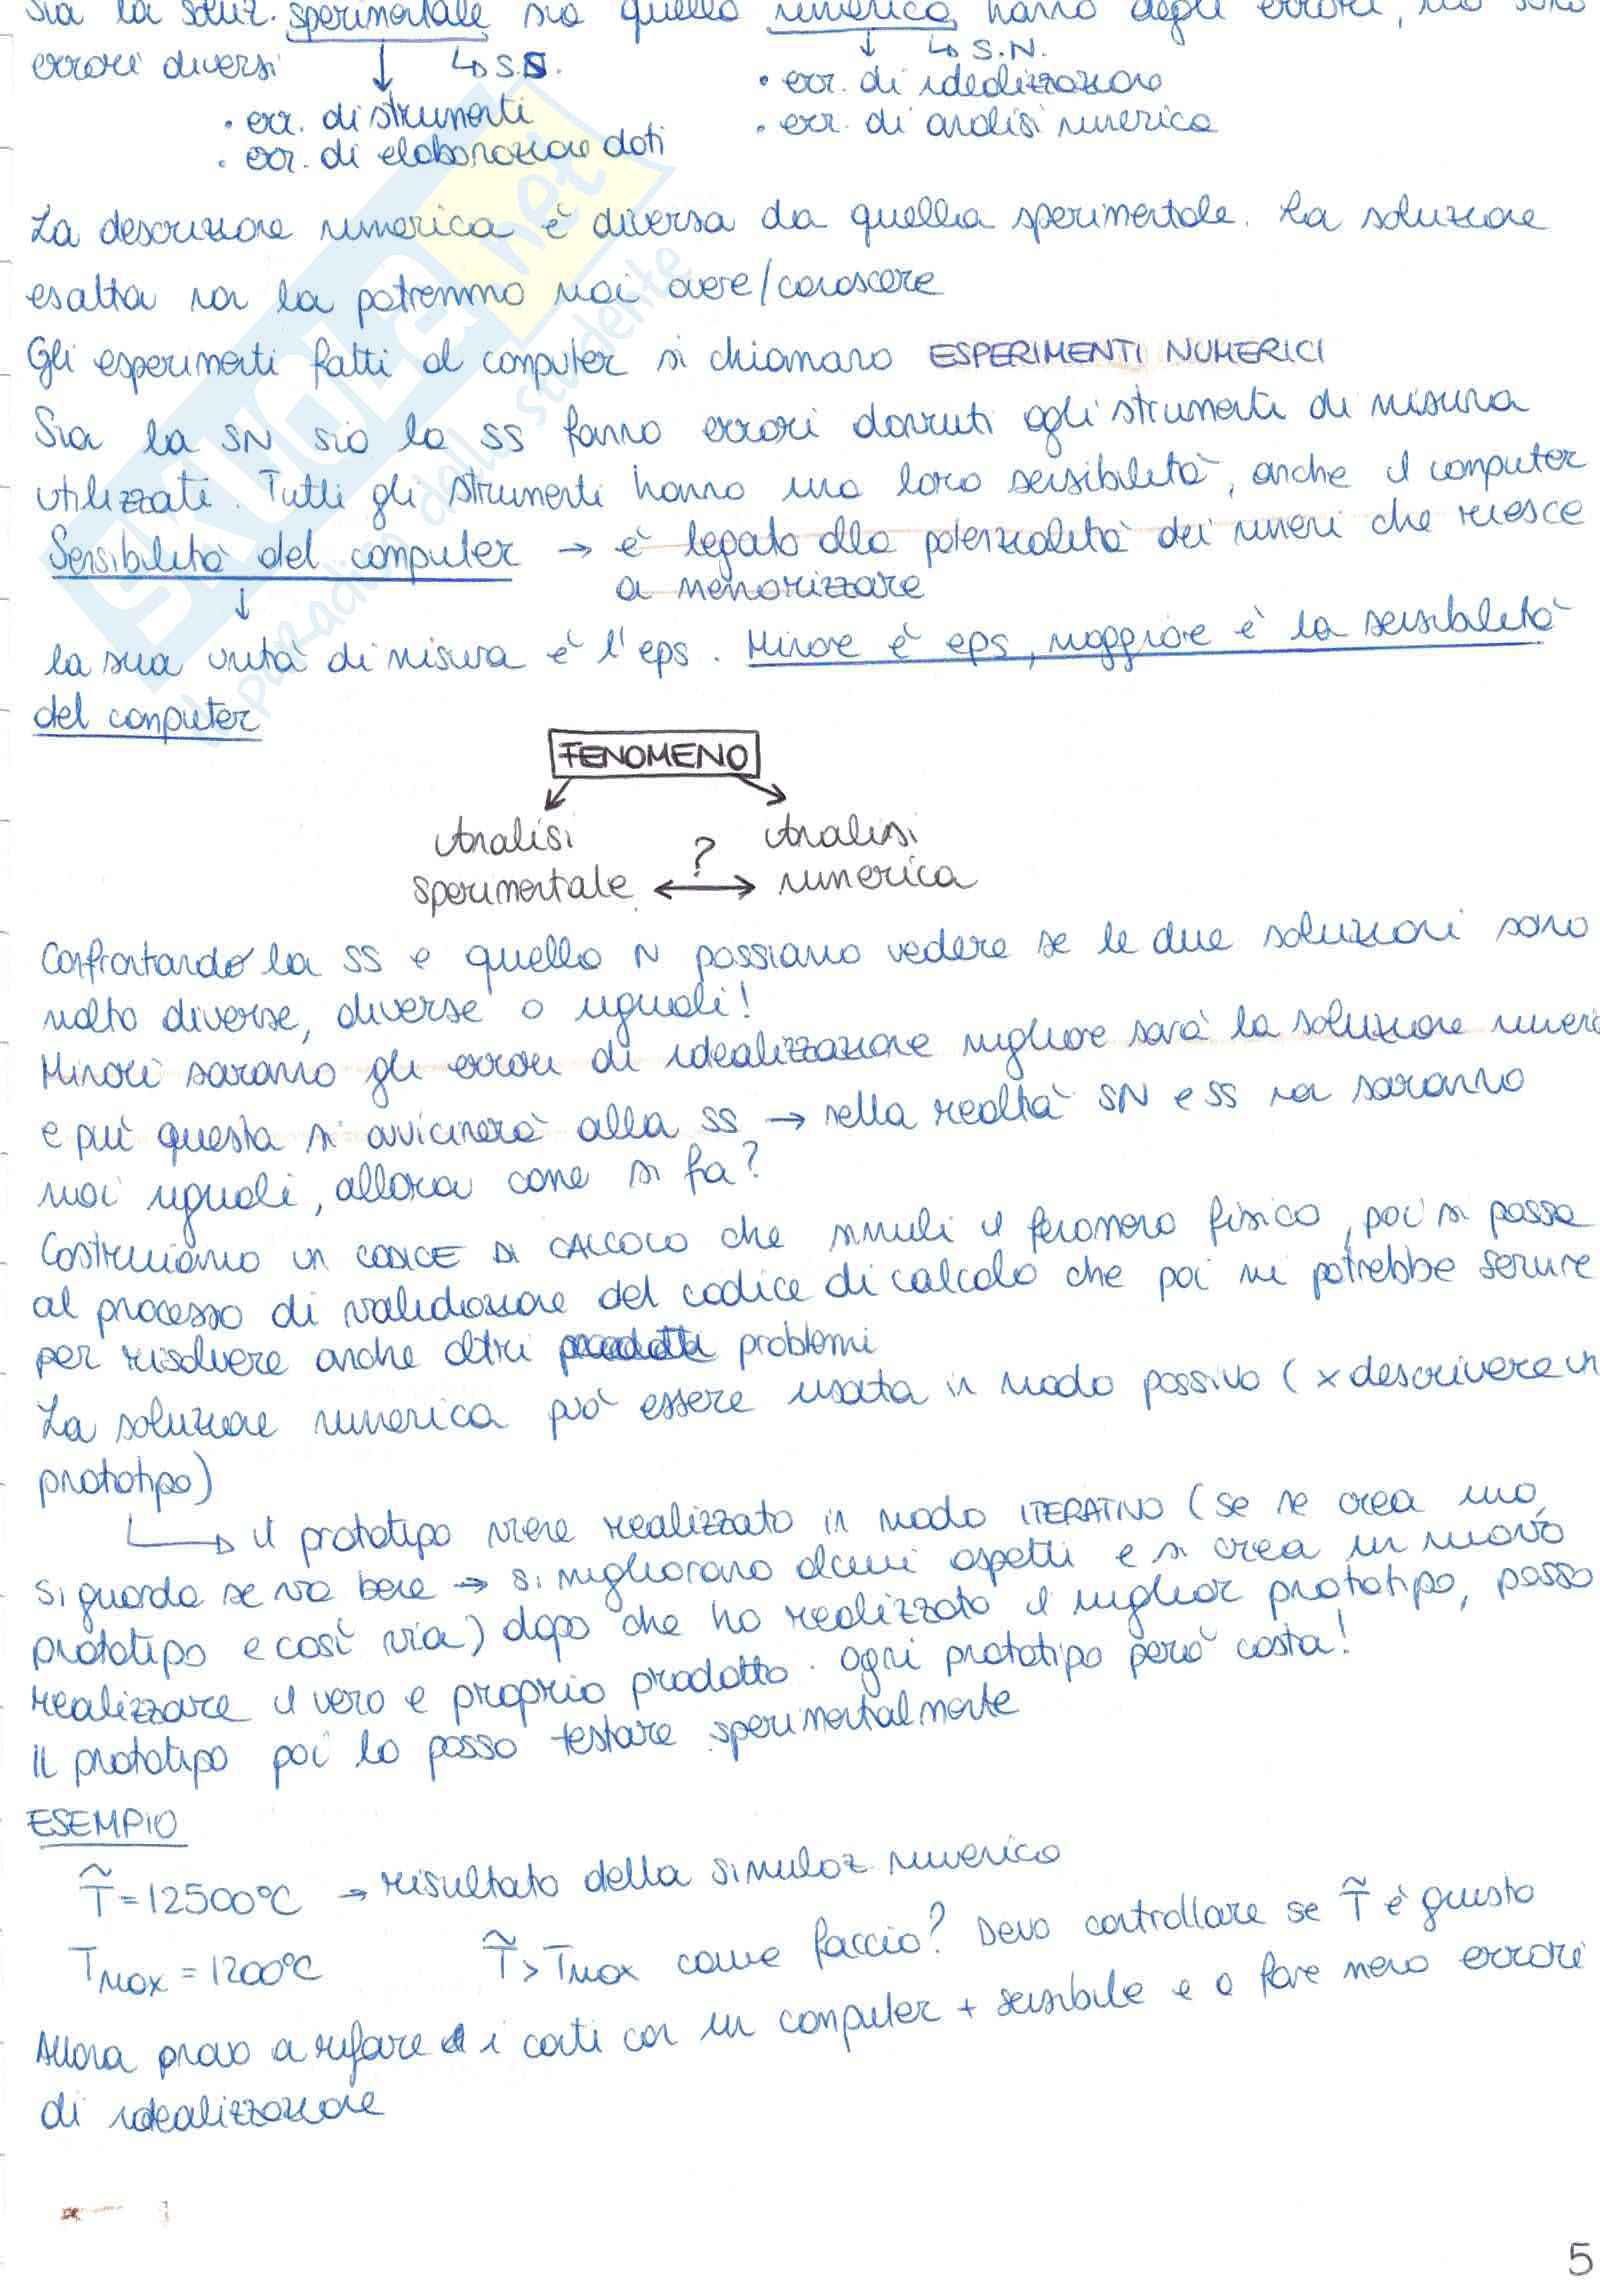 Sia la soluz. sperimentale sia quella numerica hanno degli errori, ma sono
errori diversi
↳ S.S.
↳ S.N.
• err. di strumenti
• err. di elaborazione dati
• err. di idealizzazione
• err. di analisi numerica
La descrizione numerica è diversa da quella sperimentale. La soluzione
esatta non la potremmo mai avere/conoscere
Gli esperimenti fatti al computer si chiamano ESPERIMENTI NUMERICI
Sia la SN sia la SS fanno errori dovuti agli strumenti di misura
utilizzati. Tutti gli strumenti hanno una loro sensibilità, anche il computer
Sensibilità del computer → è legata alla potenzialità dei numeri che riesce
a memorizzare
↓
la sua unità di misura è l'eps. Minore è eps, maggiore è la sensibilità
del computer
FENOMENO
Analisi sperimentale
?
Analisi numerica
Confrontando la SS e quella N possiamo vedere se le due soluzioni sono
molto diverse, diverse o uguali!
Minori saranno gli errori di idealizzazione migliore sarà la soluzione numeri
e più questa si avvicinerà alla SS → nella realtà SN e SS non saranno
mai uguali, allora come si fa?
Costruiamo un CODICE DI CALCOLO che simuli il fenomeno fisico, poi si passa
al processo di validazione del codice di calcolo che poi mi potrebbe servire
per risolvere anche altri problemi
La soluzione numerica può essere usata in modo passivo (x descrivere un
prototipo)
↳ il prototipo viene realizzato in modo ITERATIVO (se ne crea uno,
si guarda se va bene → si migliorano alcuni aspetti e si crea un nuovo
prototipo e così via) dopo che ho realizzato il miglior prototipo, posso
realizzare il vero e proprio prodotto. Ogni prototipo però costa!
Il prototipo poi lo posso testare sperimentalmente
ESEMPIO
T̃ = 12500°C → risultato della simulaz numerica
Tmax = 1200°C T̃ > Tmax come faccio? Devo controllare se T̃ è giusto
Allora provo a rifare i conti con un computer + sensibile e a fare meno errori
di idealizzazione
5
SKUOLA.net
il paradiso dello studente